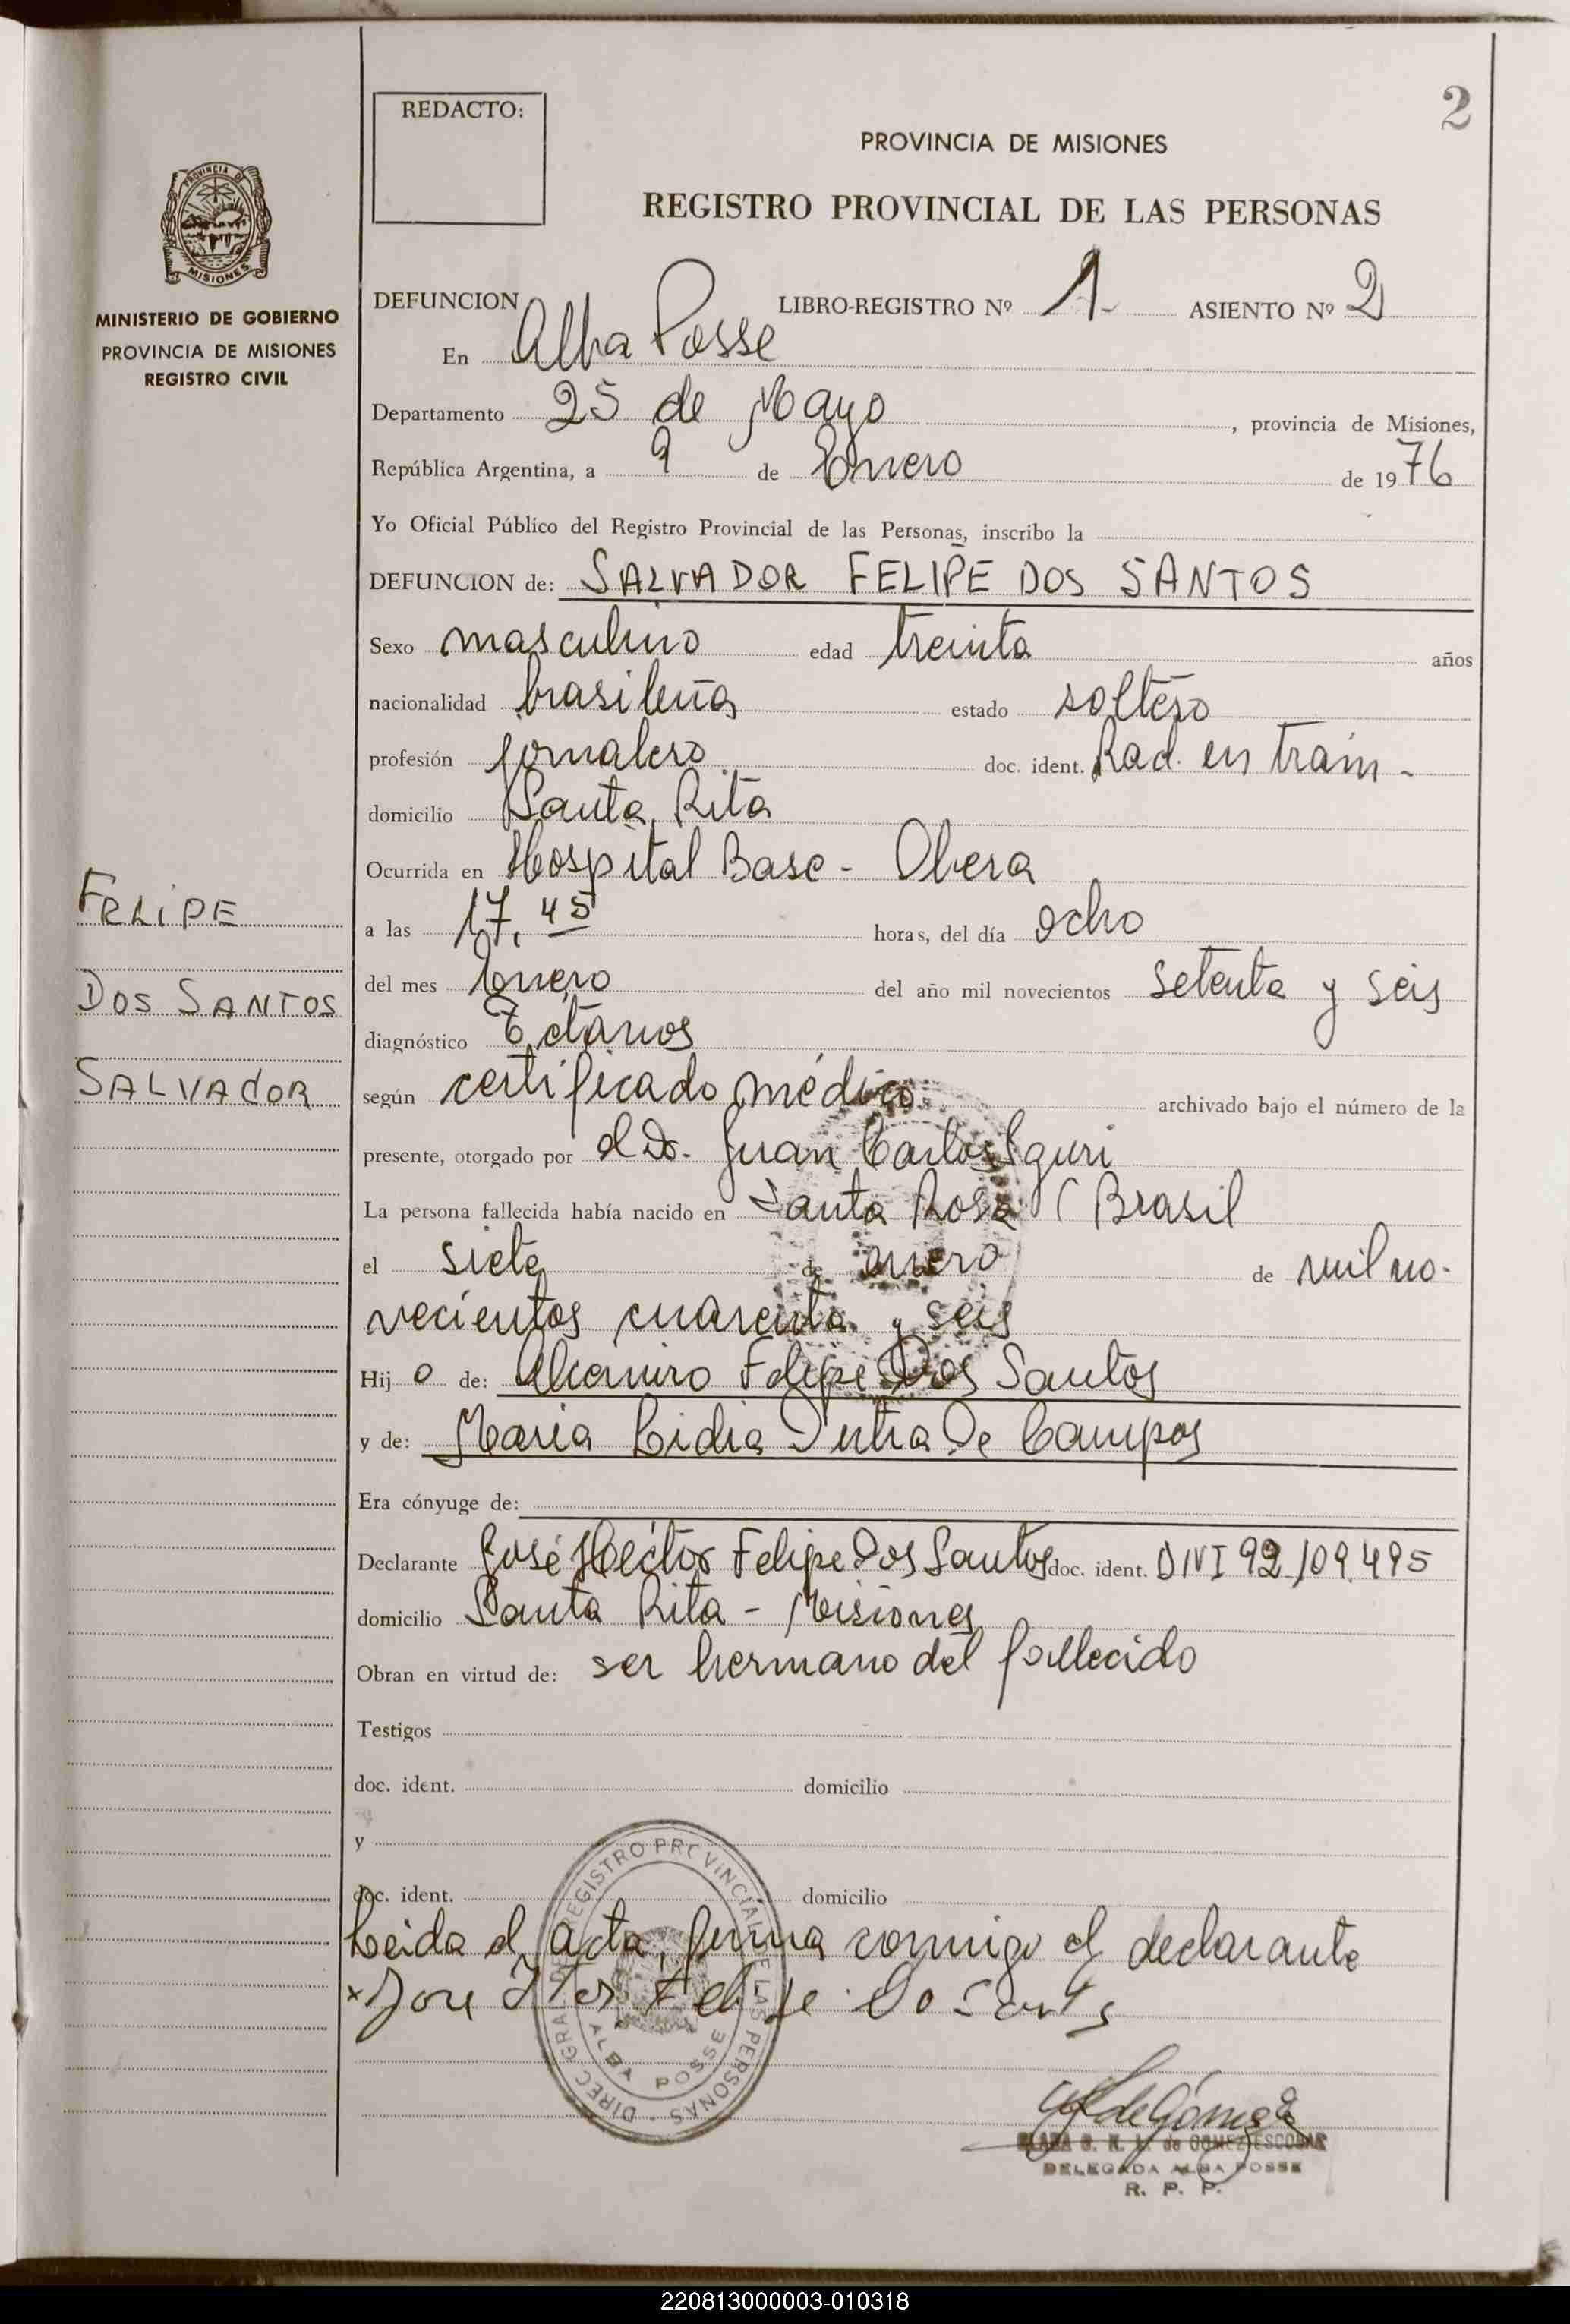 2
REDACTO:
PROVINCIA DE MISIONES
REGISTRO PROVINCIAL DE LAS PERSONAS
PROVINCIA DE
MISIONES
MINISTERIO DE GOBIERNO
PROVINCIA DE MISIONES
REGISTRO CIVIL
DEFUNCION LIBRO-REGISTRO Nº 1- ASIENTO Nº 2
En Alba Posse
Departamento 25 de Mayo, provincia de Misiones,
República Argentina, a 9 de Enero de 1976
Yo Oficial Público del Registro Provincial de las Personas, inscribo la
DEFUNCION de: SALVADOR FELIPE DOS SANTOS
Sexo masculino edad treinta años
nacionalidad brasileña estado soltero
profesión jornalero doc. ident. Rad. en trám-
domicilio Santa Rita
Ocurrida en Hospital Base - Obera
FELIPE
DOS SANTOS
SALVADOR
a las 17,45 horas, del día ocho
del mes Enero del año mil novecientos setenta y seis
diagnóstico Tétanos
según certificado médico archivado bajo el número de la
presente, otorgado por el Dr. Juan Carlos
La persona fallecida había nacido en Santa Rosa (Brasil
el siete de enero de mil no-
vecientos cuarenta y seis
Hijo de: Felipe Dos Santos
y de: Maria Lidia Dutra De Campos
Era cónyuge de:
Declarante José Héctor Felipe Dos Santos doc. ident. DNI 92,109.495
domicilio Santa Rita - Misiones
Obran en virtud de: ser hermano del fallecido
Testigos
doc. ident. domicilio
y
doc. ident. domicilio
Leida el acta, firma conmigo el declarante
x Jose Felipe Do Santos
DIREC. GRAL. DE REGISTRO PROVINCIAL DE LAS PERSONAS
ALBA POSSE
de Gómez
de GOMEZ ESCOBAR
DELEGADA ALBA POSSE
R. P. P.
220813000003-010318